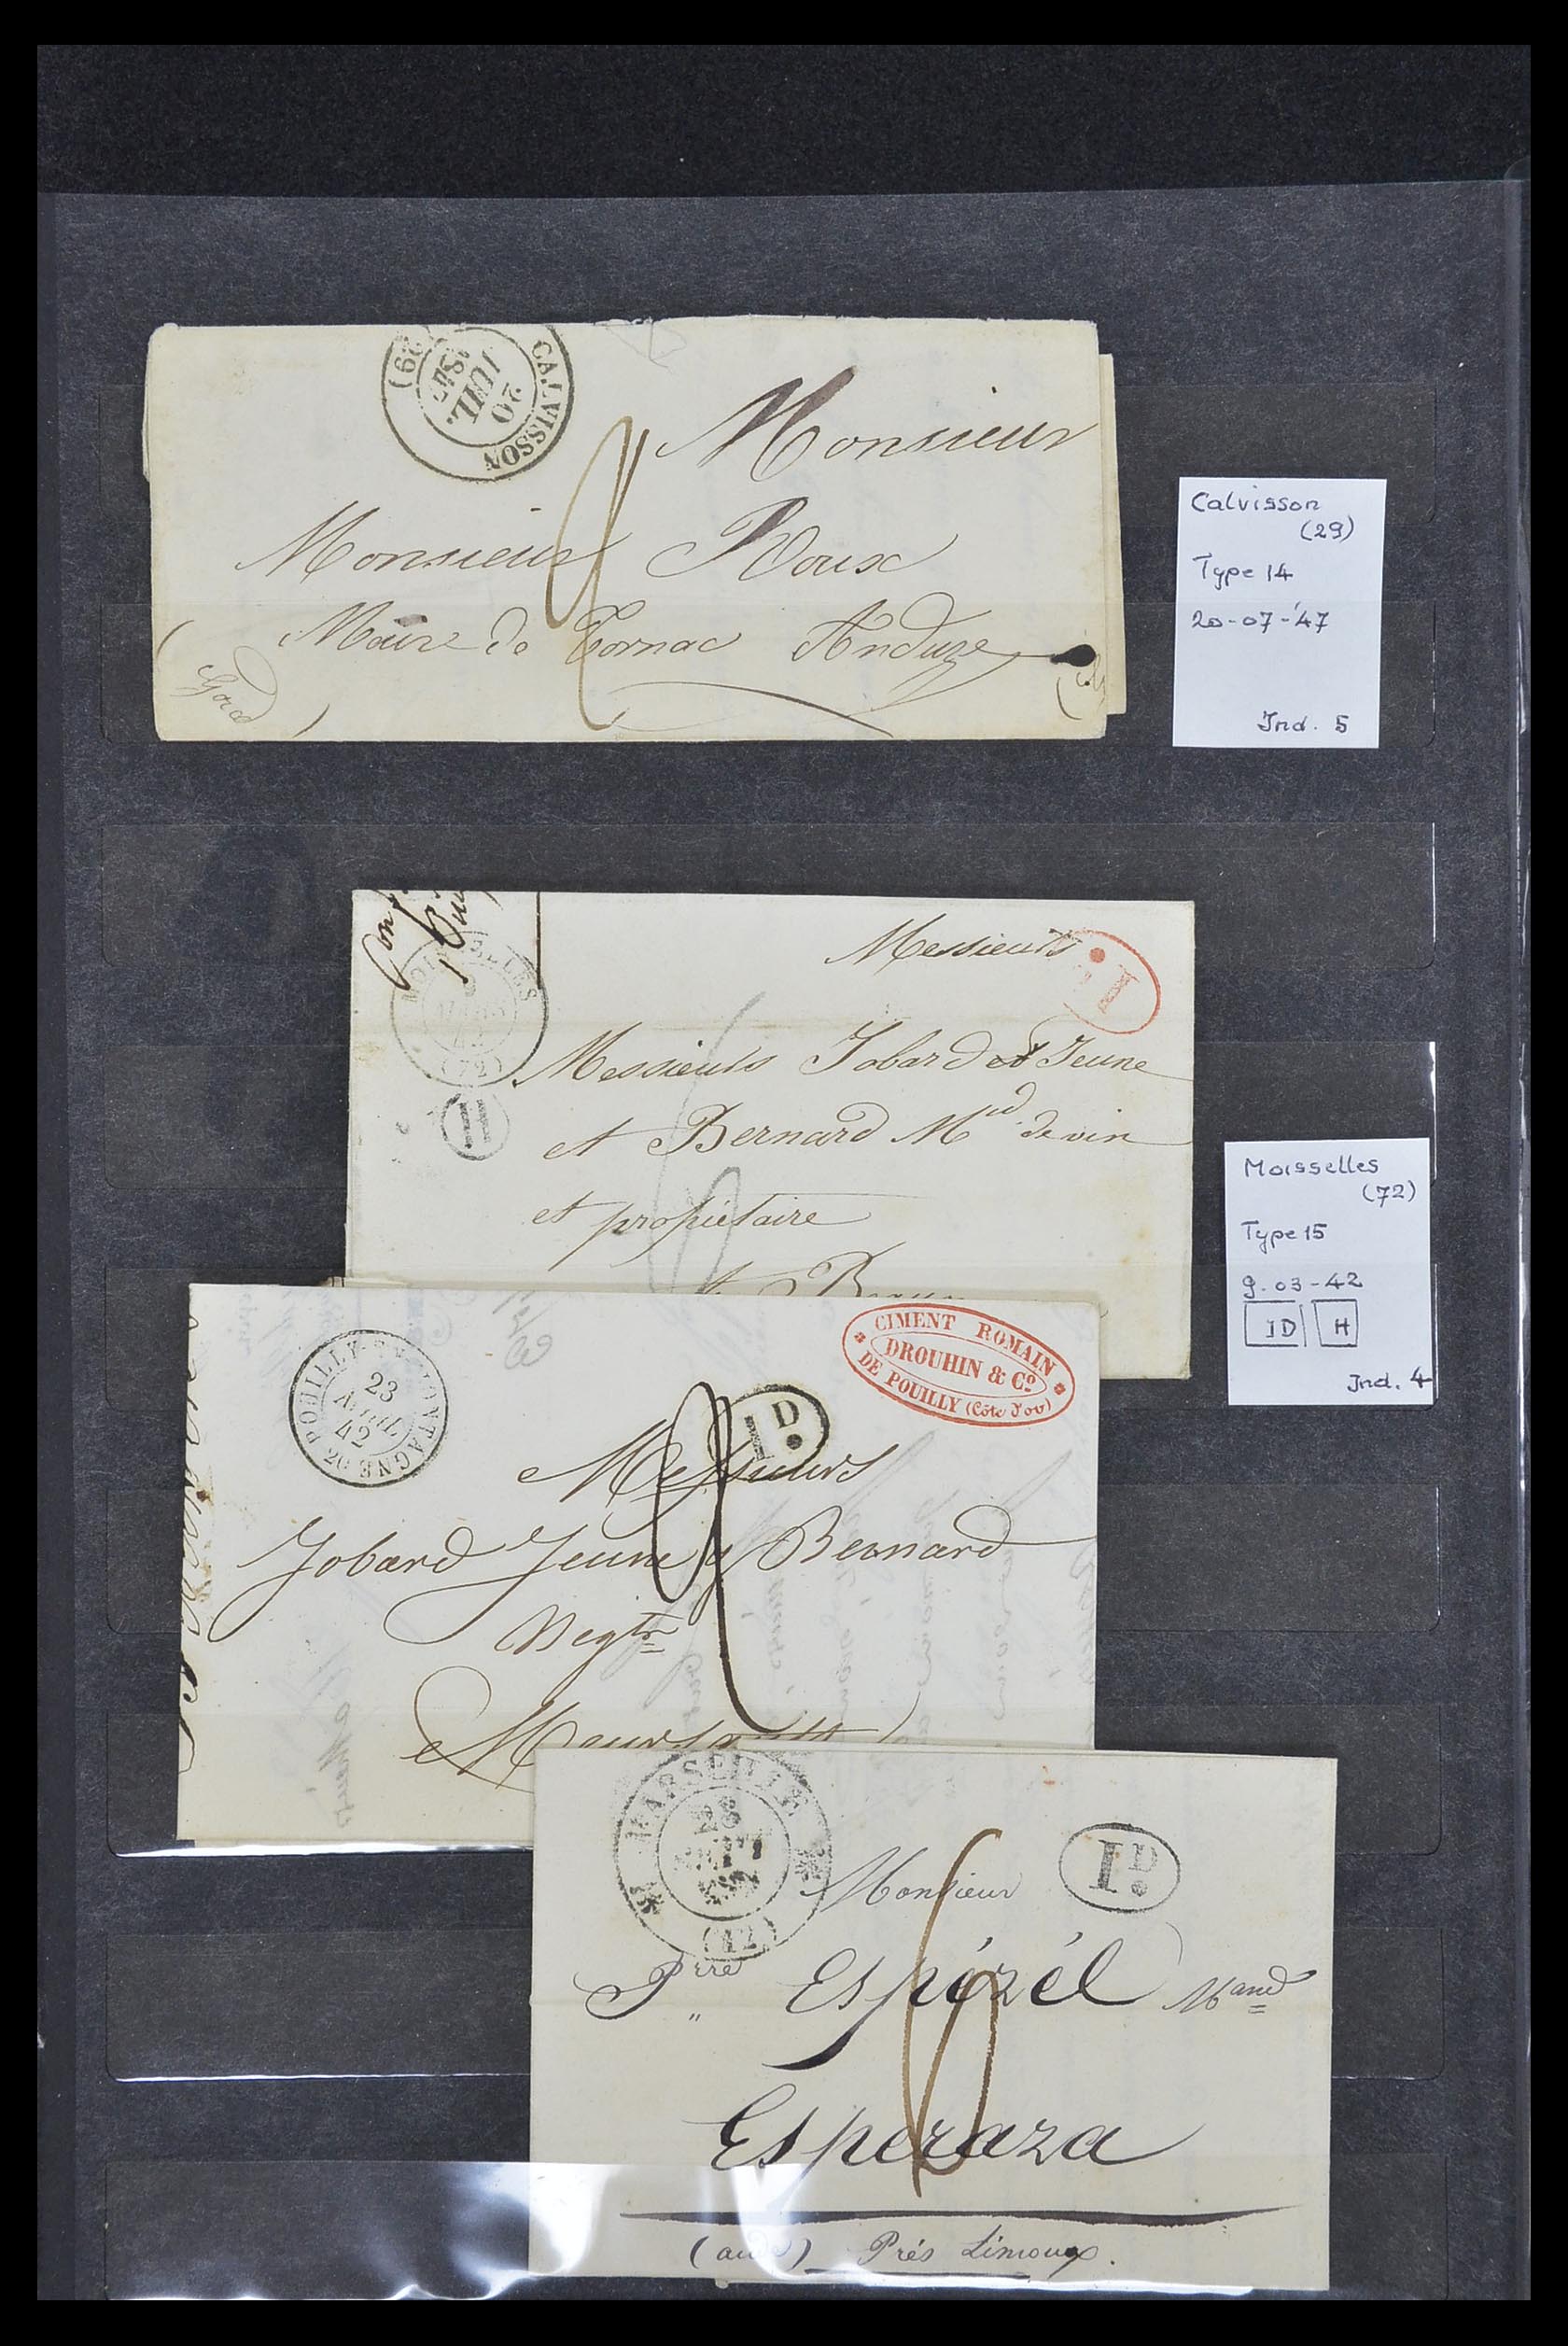 CALVISSON
20
JUIL.
(29)
Monsieur
Monsieur Roux
Maire de Tornac Anduze
(Gard)
Calvisson
(29)
Type 14
20-07-'47
Ind. 5
MOISSELLES
(72)
H
Messieurs
Messieurs Jobard et Jeune
et Bernard Md de vin
et propriétaire
Moisselles
(72)
Type 15
9.03-42
ID H
Ind. 4
POUILLY-EN-MONTAGNE
23
AVRIL
42
1D
CIMENT ROMAIN
DROUHIN & Co
DE POUILLY (Côte d'or)
Messieurs
Jobard Jeune & Bernard
Negts
Meursault
MARSEILLE
28
(12)
1D
Monsieur
Pre Espézél Mand
Esperaza
(aude) Prés Limoux.